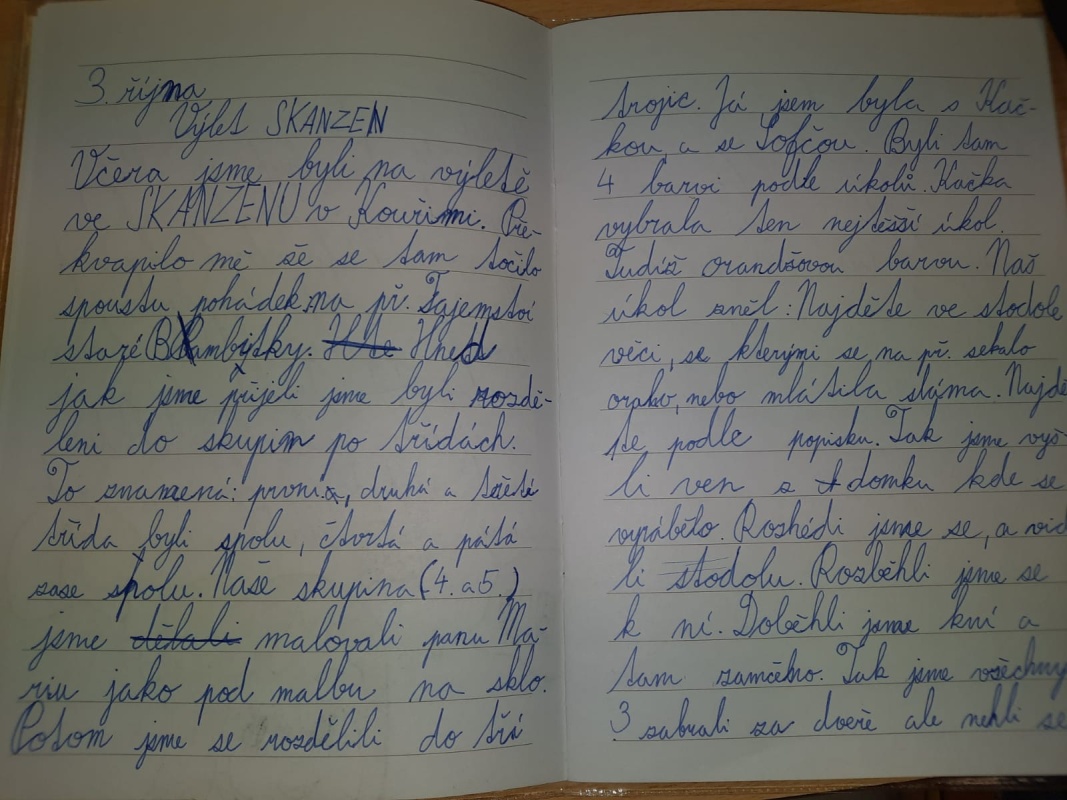 3. října
Výlet SKANZEN
Včera jsme byli na výletě
ve SKANZENU v Kouřimi. Pře-
kvapilo mě že se tam točilo
spoustu pohádek, na př. Tajemství
staré Bambitky. Hned
jak jsme přijeli jsme byli rozdě-
leni do skupin po třídách.
To znamená: první, druhá a třetí
třída byli spolu, čtvrtá a pátá
zase spolu. Naše skupina (4. a 5.)
jsme dělali malovali panu Ma-
riu jako pod malbu na sklo.
Potom jsme se rozdělili do tří
trojic. Já jsem byla s Kač-
kou a se Sofčou. Byli tam
4 barvi podle úkolů. Kačka
vybrala ten nejtěšší úkol.
Tudíž orandžovou barvu. Naš
úkol zněl: Najděte ve stodole
věci, se kterými se, na př. sekalo
oralo, nebo mlátila sláma. Najdě
te podle popisku. Tak jsme vyš-
li ven z domku kde se
vyrábělo. Rozhédli jsme se, a vid
li stodolu. Rozběhli jsme se
k ní. Doběhli jsme kní a
tam zamčeno. Tak jsme všechny
3 zabrali za dveře ale nehli se